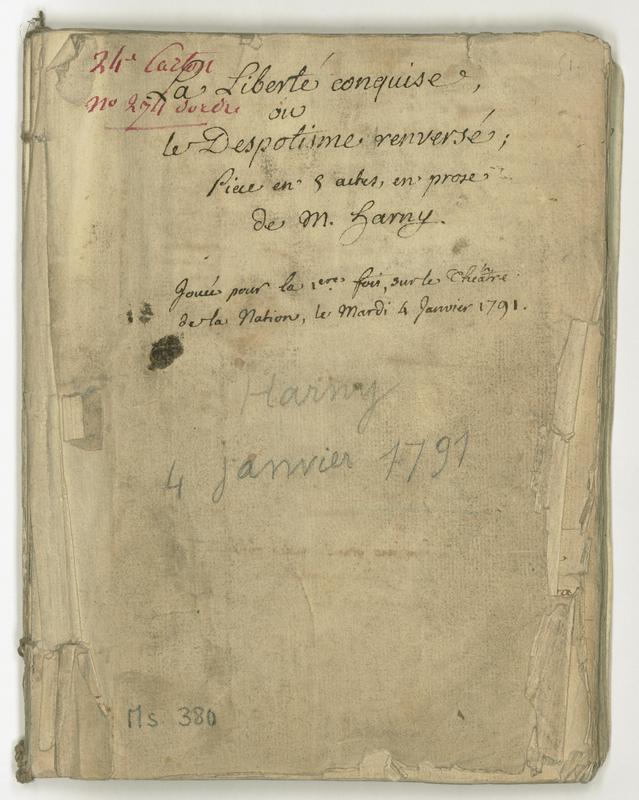 24e Carton
No 274 dordre
La Liberté conquise,
ou
le Despotisme renversé;
Piece en 5 actes, en prose
de M. Harny.
Jouée pour la 1ere fois, sur le Théâtre
de la Nation, le Mardi 4 Janvier 1791.
Harny
4 janvier 1791
Ms 380